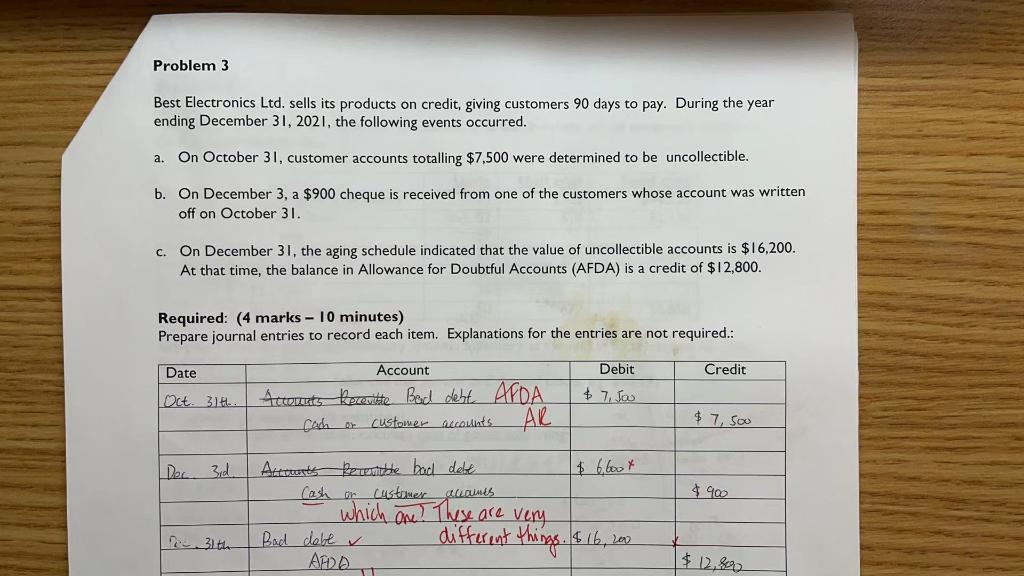 Problem 3
Best Electronics Ltd. sells its products on credit, giving customers 90 days to pay. During the year
ending December 31, 2021, the following events occurred.
a. On October 31, customer accounts totalling $7,500 were determined to be uncollectible.
b. On December 3, a $900 cheque is received from one of the customers whose account was written
off on October 31.
c. On December 31, the aging schedule indicated that the value of uncollectible accounts is $16,200.
At that time, the balance in Allowance for Doubtful Accounts (AFDA) is a credit of $12,800.
Required: (4 marks – 10 minutes)
Prepare journal entries to record each item. Explanations for the entries are not required.:
Date Account Debit Credit
Oct. 31th. Accounts Bad debt AFDA $ 7,500
Cash or customer accounts AR $ 7,500
Dec 3rd Accounts bad debt $ 6,600 x
Cash or customer accounts $ 900
which one? These are very
different things.
31th Bad debt ✓ $ 16,200 x
AFDA $ 12,800